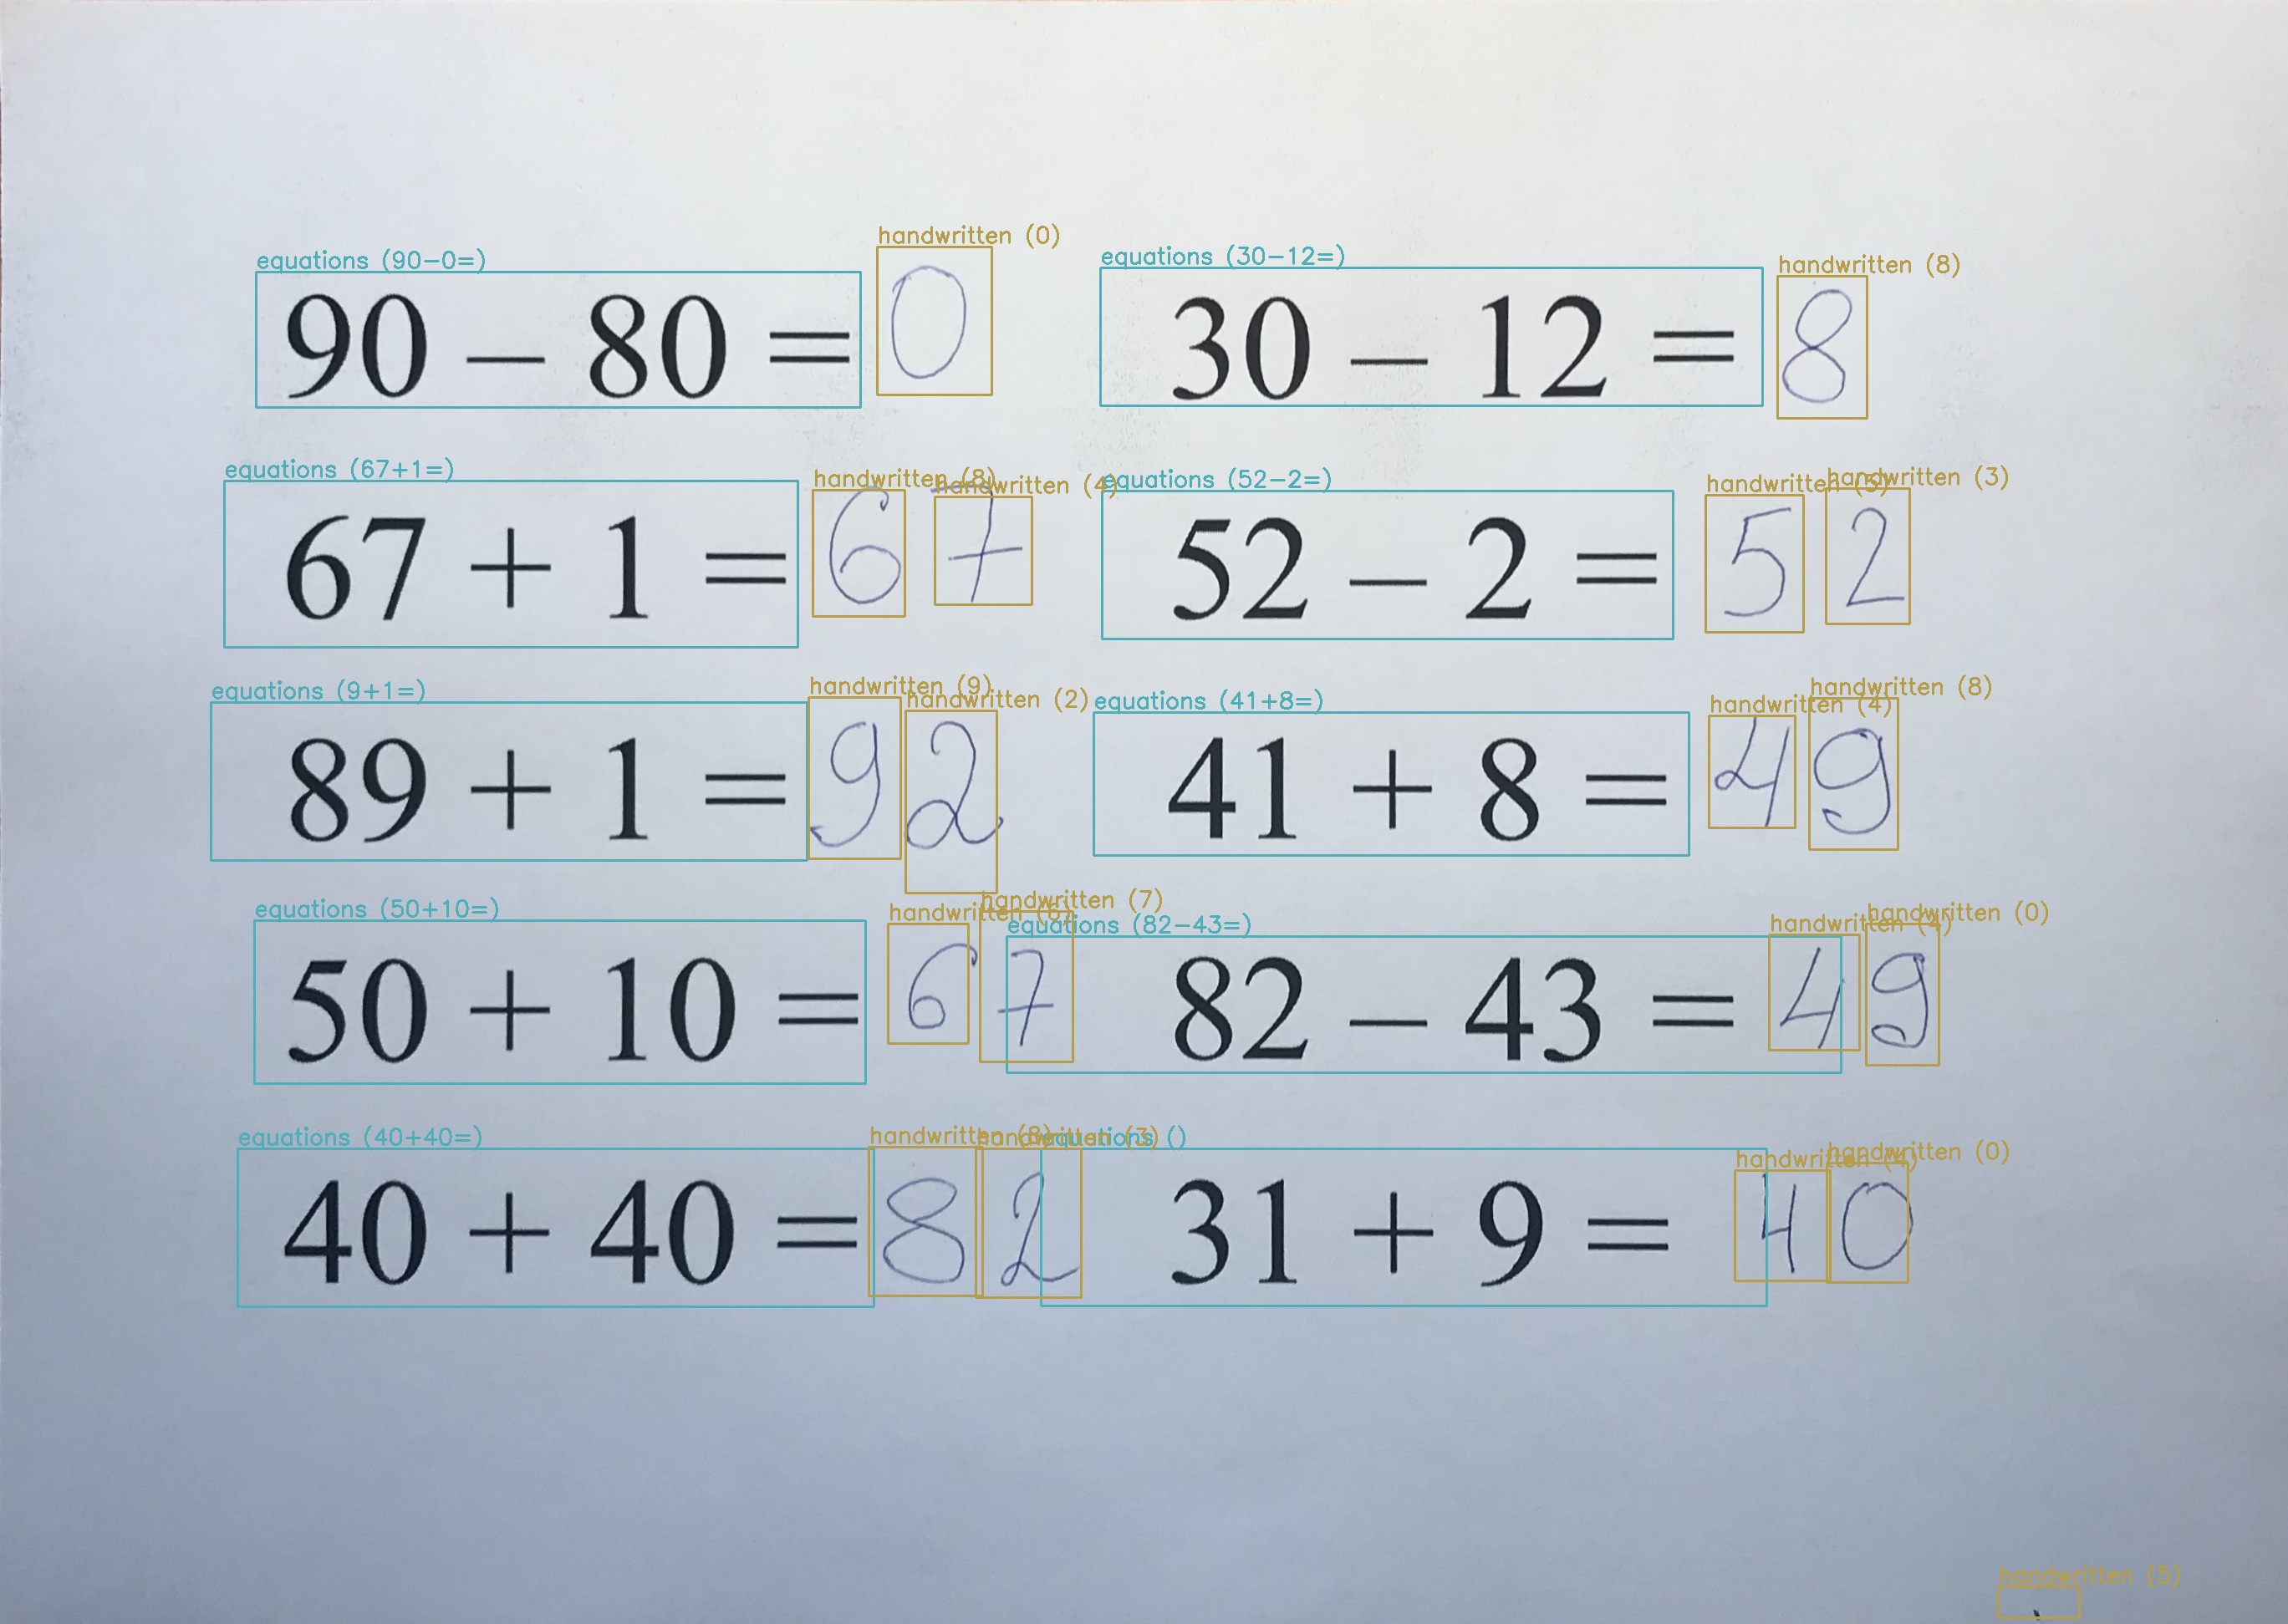 handwritten (0)
equations (90-0=) equations (30-12=) handwritten (8)
90 – 80 = 0 30 – 12 = 8
equations (67+1=) handwritten (8) handwritten (4) equations (52-2=) handwritten (5) handwritten (3)
67 + 1 = 67 52 – 2 = 52
equations (9+1=) handwritten (9) handwritten (2) equations (41+8=) handwritten (4) handwritten (8)
89 + 1 = 92 41 + 8 = 49
equations (50+10=) handwritten (6) handwritten (7) equations (82-43=) handwritten (4) handwritten (0)
50 + 10 = 67 82 – 43 = 49
equations (40+40=) handwritten (8) handwritten (3) equations () handwritten (4) handwritten (0)
40 + 40 = 82 31 + 9 = 40
handwritten (5)